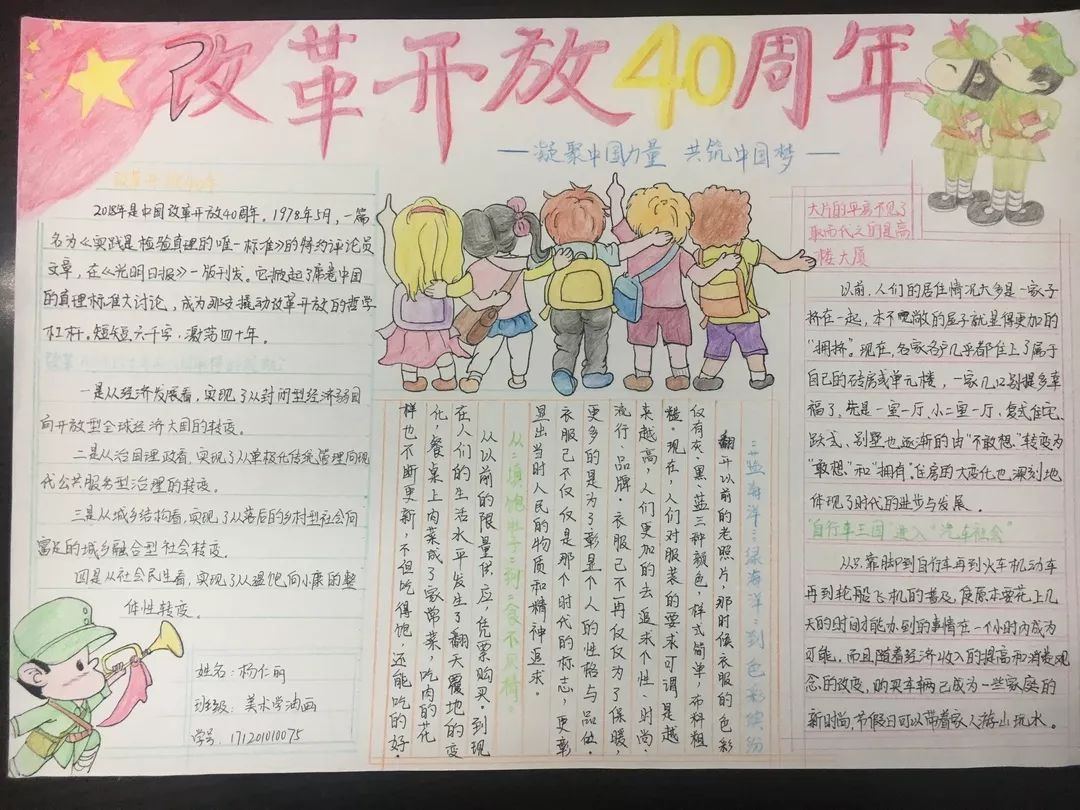 改革开放40周年
—凝聚中国力量 共筑中国梦—
改革开放40年
2018年是中国改革开放40周年。1978年5月,一篇
名为《实践是检验真理的唯一标准》的特约评论员
文章,在《光明日报》一版刊发。它掀起了席卷中国
的真理标准大讨论,成为那支撬动改革开放的哲学
杠杆。短短六千字,激荡四十年。
改革
一是从经济发展看,实现了从封闭型经济弱国
向开放型全球经济大国的转变。
二是从治国理政看,实现了从单极化传统管理向现
代公共服务型治理的转变。
三是从城乡结构看,实现了从落后的乡村型社会向
富足的城乡融合型社会转变。
四是从社会民生看,实现了从温饱向小康的整
体性转变。
姓名:杨仁丽
班级:美术学油画
学号:171201010075
"蓝海洋""绿海洋"到色彩缤纷
翻开以前的老照片,那时候衣服的色彩
仅有灰、黑、蓝三种颜色,样式简单,布料粗
糙。现在,人们对服装的要求可谓是越
来越高,人们更加的去追求个性、时尚、
流行、品牌。衣服已不再仅仅为了保暖,
更多的是为了彰显个人的性格与品位。
衣服已不仅仅是那个时代的标志,更彰
显出当时人民的物质和精神追求。
从"填饱肚子"到"食不只精"。
从以前的限量供应,凭票购买。到现
在人们的生活水平发生了翻天覆地的变
化,餐桌上肉菜成了家常菜,吃肉的花
样也不断更新,不但吃得饱,还能吃的好。
大片的平房不见了
取而代之的是高
楼大厦
以前,人们的居住情况大多是一家子
挤在一起,本不宽敞的屋子就显得更加的
"拥挤"。现在,各家各户几乎都住上了属于
自己的砖房或单元楼,一家几口别提多幸
福了。先是一室一厅,小二室一厅、复式住宅、
跃式、别墅也逐渐的由"不敢想"转变为
"敢想"和"拥有"。住房的大变化也深刻地
体现了时代的进步与发展。
"自行车王国"进入"汽车社会"
从只靠脚到自行车再到火车机动车
再到轮船飞机的普及,使原本要花上几
天的时间才能办到的事情在一个小时内成为
可能。而且随着经济收入的提高和消费观
念的改变,购买车辆已成为一些家庭的
新时尚,节假日可以带着家人游山玩水。